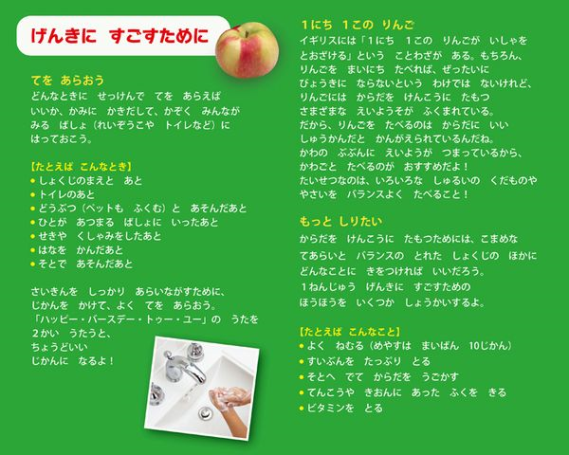 げんきに すごすために
てを あらおう
どんなときに せっけんで てを あらえば
いいか、かみに かきだして、かぞく みんなが
みる ばしょ（れいぞうこや トイレなど）に
はっておこう。
【たとえば こんなとき】
● しょくじのまえと あと
● トイレのあと
● どうぶつ（ペットも ふくむ）と あそんだあと
● ひとが あつまる ばしょに いったあと
● せきや くしゃみをしたあと
● はなを かんだあと
● そとで あそんだあと
さいきんを しっかり あらいながすために、
じかんを かけて、よく てを あらおう。
「ハッピー・バースデー・トゥー・ユー」の うたを
２かい うたうと、
ちょうどいい
じかんに なるよ！
１にち １この りんご
イギリスには「１にち １この りんごが いしゃを
とおざける」という ことわざが ある。もちろん、
りんごを まいにち たべれば、ぜったいに
びょうきに ならないという わけでは ないけれど、
りんごには からだを けんこうに たもつ
さまざまな えいようそが ふくまれている。
だから、りんごを たべるのは からだに いい
しゅうかんだと かんがえられているんだね。
かわの ぶぶんに えいようが つまっているから、
かわごと たべるのが おすすめだよ！
たいせつなのは、いろいろな しゅるいの くだものや
やさいを バランスよく たべること！
もっと しりたい
からだを けんこうに たもつためには、こまめな
てあらいと バランスの とれた しょくじの ほかに
どんなことに きをつければ いいだろう。
１ねんじゅう げんきに すごすための
ほうほうを いくつか しょうかいするよ。
【たとえば こんなこと】
● よく ねむる（めやすは まいばん 10じかん）
● すいぶんを たっぷり とる
● そとへ でて からだを うごかす
● てんこうや きおんに あった ふくを きる
● ビタミンを とる